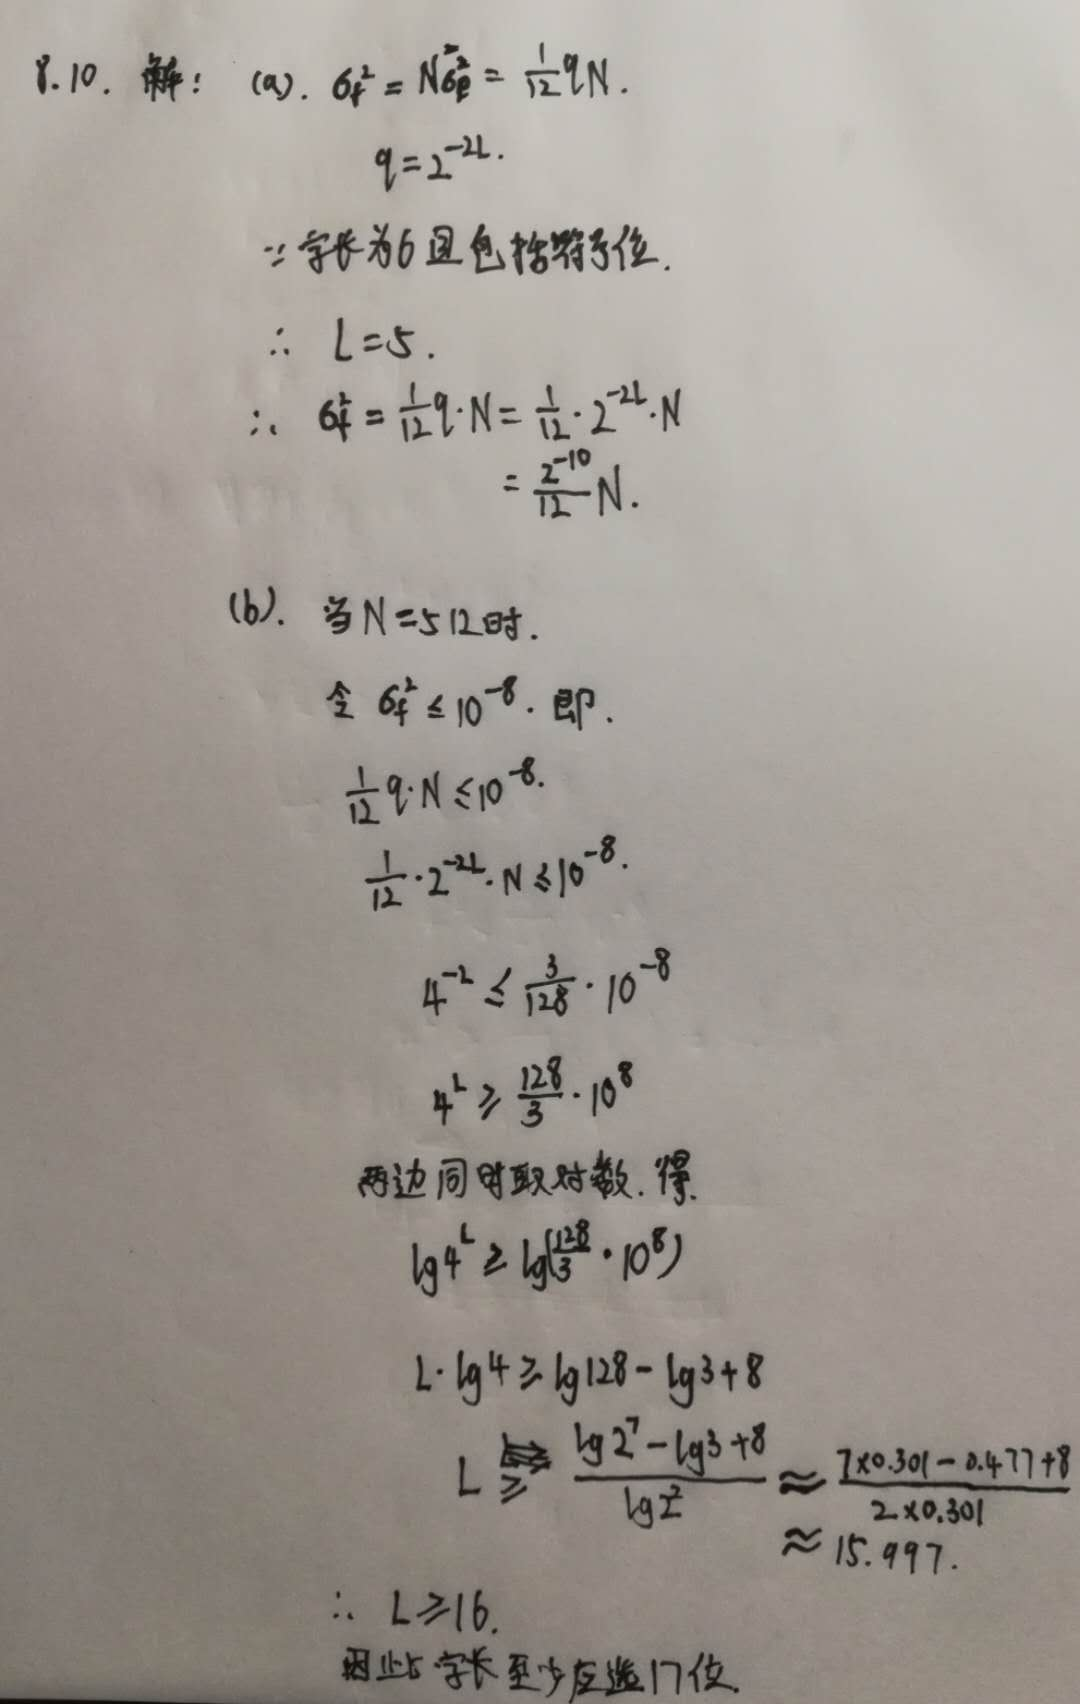 8.10. 解: (a). σ_f² = N²σ_e² = 1/12 qN.
q = 2^{-2L}.
∵ 字长为6且包括符号位.
∴ L = 5.
∴ σ_f² = 1/12 q·N = 1/12 · 2^{-2L} · N
= 2^{-10}/12 N.
(b). 当 N = 512时.
令 σ_f² ≤ 10^{-8}. 即.
1/12 q·N ≤ 10^{-8}.
1/12 · 2^{-2L} · N ≤ 10^{-8}.
4^{-L} ≤ 3/128 · 10^{-8}
4^L ≥ 128/3 · 10^8
两边同时取对数. 得.
lg4^L ≥ lg(128/3 · 10^8)
L·lg4 ≥ lg128 - lg3 + 8
L ≥ (lg2^7 - lg3 + 8)/lg2² ≈ (7×0.301 - 0.477 + 8)/(2×0.301)
≈ 15.997.
∴ L ≥ 16.
因此 字长至少应选17位.